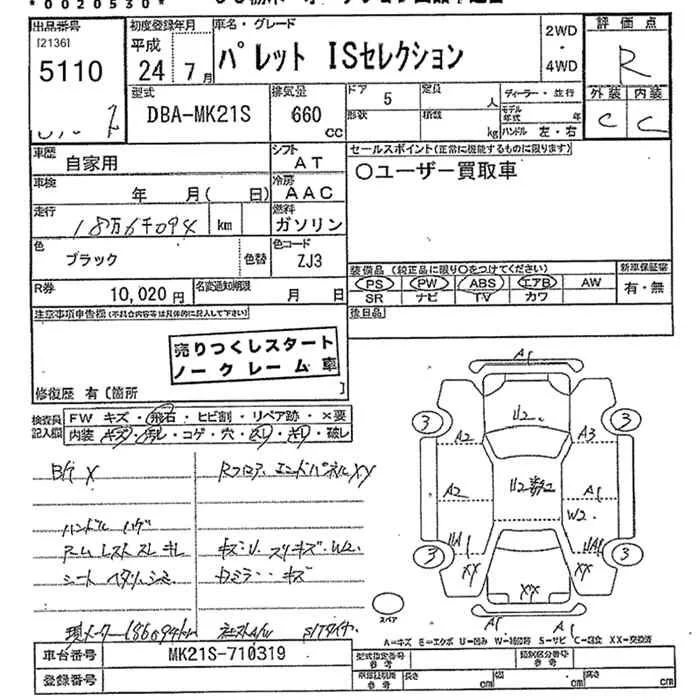 *0020530*
出品番号
[2136]
5110
初度登録年月
平成
24年7月
車名・グレード
パレット ISセレクション
2WD
・
4WD
評価点
R
外装 内装
C C
型式
DBA-MK21S
排気量
660
cc
ドア
5
定員
人
ディーラー・並行
形状
積載
kg
モデル年式 年
ハンドル 左・右
車歴
自家用
シフト
AT
セールスポイント(正常に機能するものに限ります)
○ユーザー買取車
車検
年 月( 日)
冷房
AAC
走行
18万6千094
km
燃料
ガソリン
色
ブラック
色替
色コード
ZJ3
装備品 (純正品に限り○をつけてください)
PS PW ABS エアB AW
SR ナビ TV カワ
新車保証書
有・無
R券
10,020円
名変通知期限
月 日
後日品
注意事項申告欄(不具合内容等は具体的に記入して下さい)
売りつくしスタート
ノークレーム車
修復歴 有[箇所 ]
検査員記入欄
FW キズ・飛石・ヒビ割・リペア跡・×要
内装 キズ・汚レ・コゲ・穴・スレ・キレ・破レ
ハンドル ハゲ
ルームレスト スレ キレ
シート ヘタリ、シミ
Rフロア、エンドパネルXX
キズ・U、スリキズ・W2
現メーター186094km
A1
U2
3 3
A2 A3
A2 A1
W2
3 3
XX XX
XX
A1 A1
スペア
A=キズ E=エクボ U=凹み W=補修跡 S=サビ C=腐食 XX=交換済
車台番号
MK21S-710319
登録番号
型式指定番号
参考
類別区分番号
参考
車庫証明用
参考
長さ cm
幅 cm
高さ cm